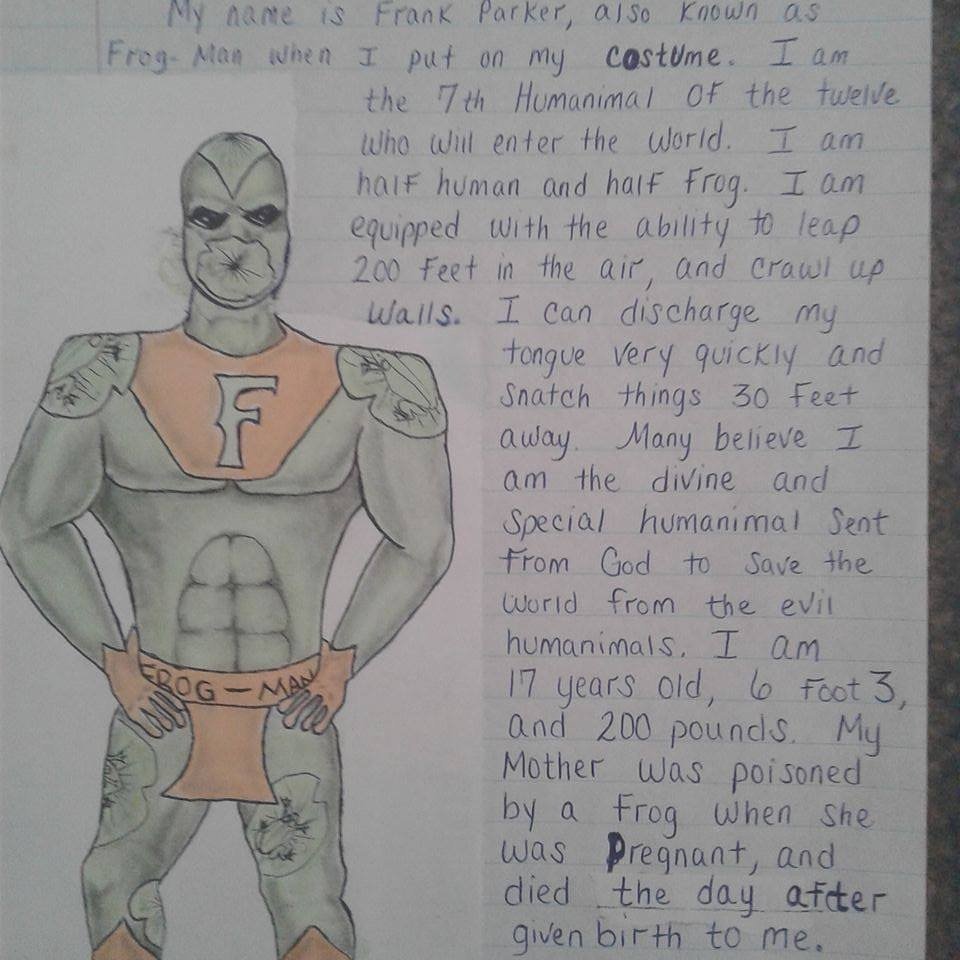 My name is Frank Parker, also known as
Frog-Man when I put on my costume. I am
the 7th Humanimal of the twelve
who will enter the world. I am
half human and half Frog. I am
equipped with the ability to leap
200 Feet in the air, and crawl up
walls. I can discharge my
tongue very quickly and
snatch things 30 Feet
away. Many believe I
am the divine and
special humanimal sent
from God to save the
world from the evil
humanimals. I am
17 years old, 6 foot 3,
and 200 pounds. My
Mother was poisoned
by a frog when she
was Pregnant, and
died the day after
given birth to me.
F
FROG-MAN